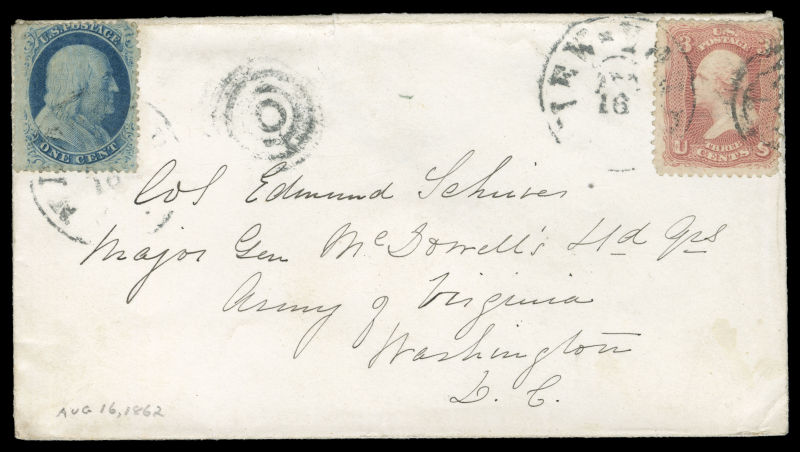 U.S. POSTAGE
ONE CENT
3 3
U.S. POSTAGE
U THREE CENTS S
NEW-Y
AUG
16
16
Col Edmund Schriver
Major Gen McDowell's Hd Qrs
Army of Virginia
Washington
D. C.
AUG 16, 1862